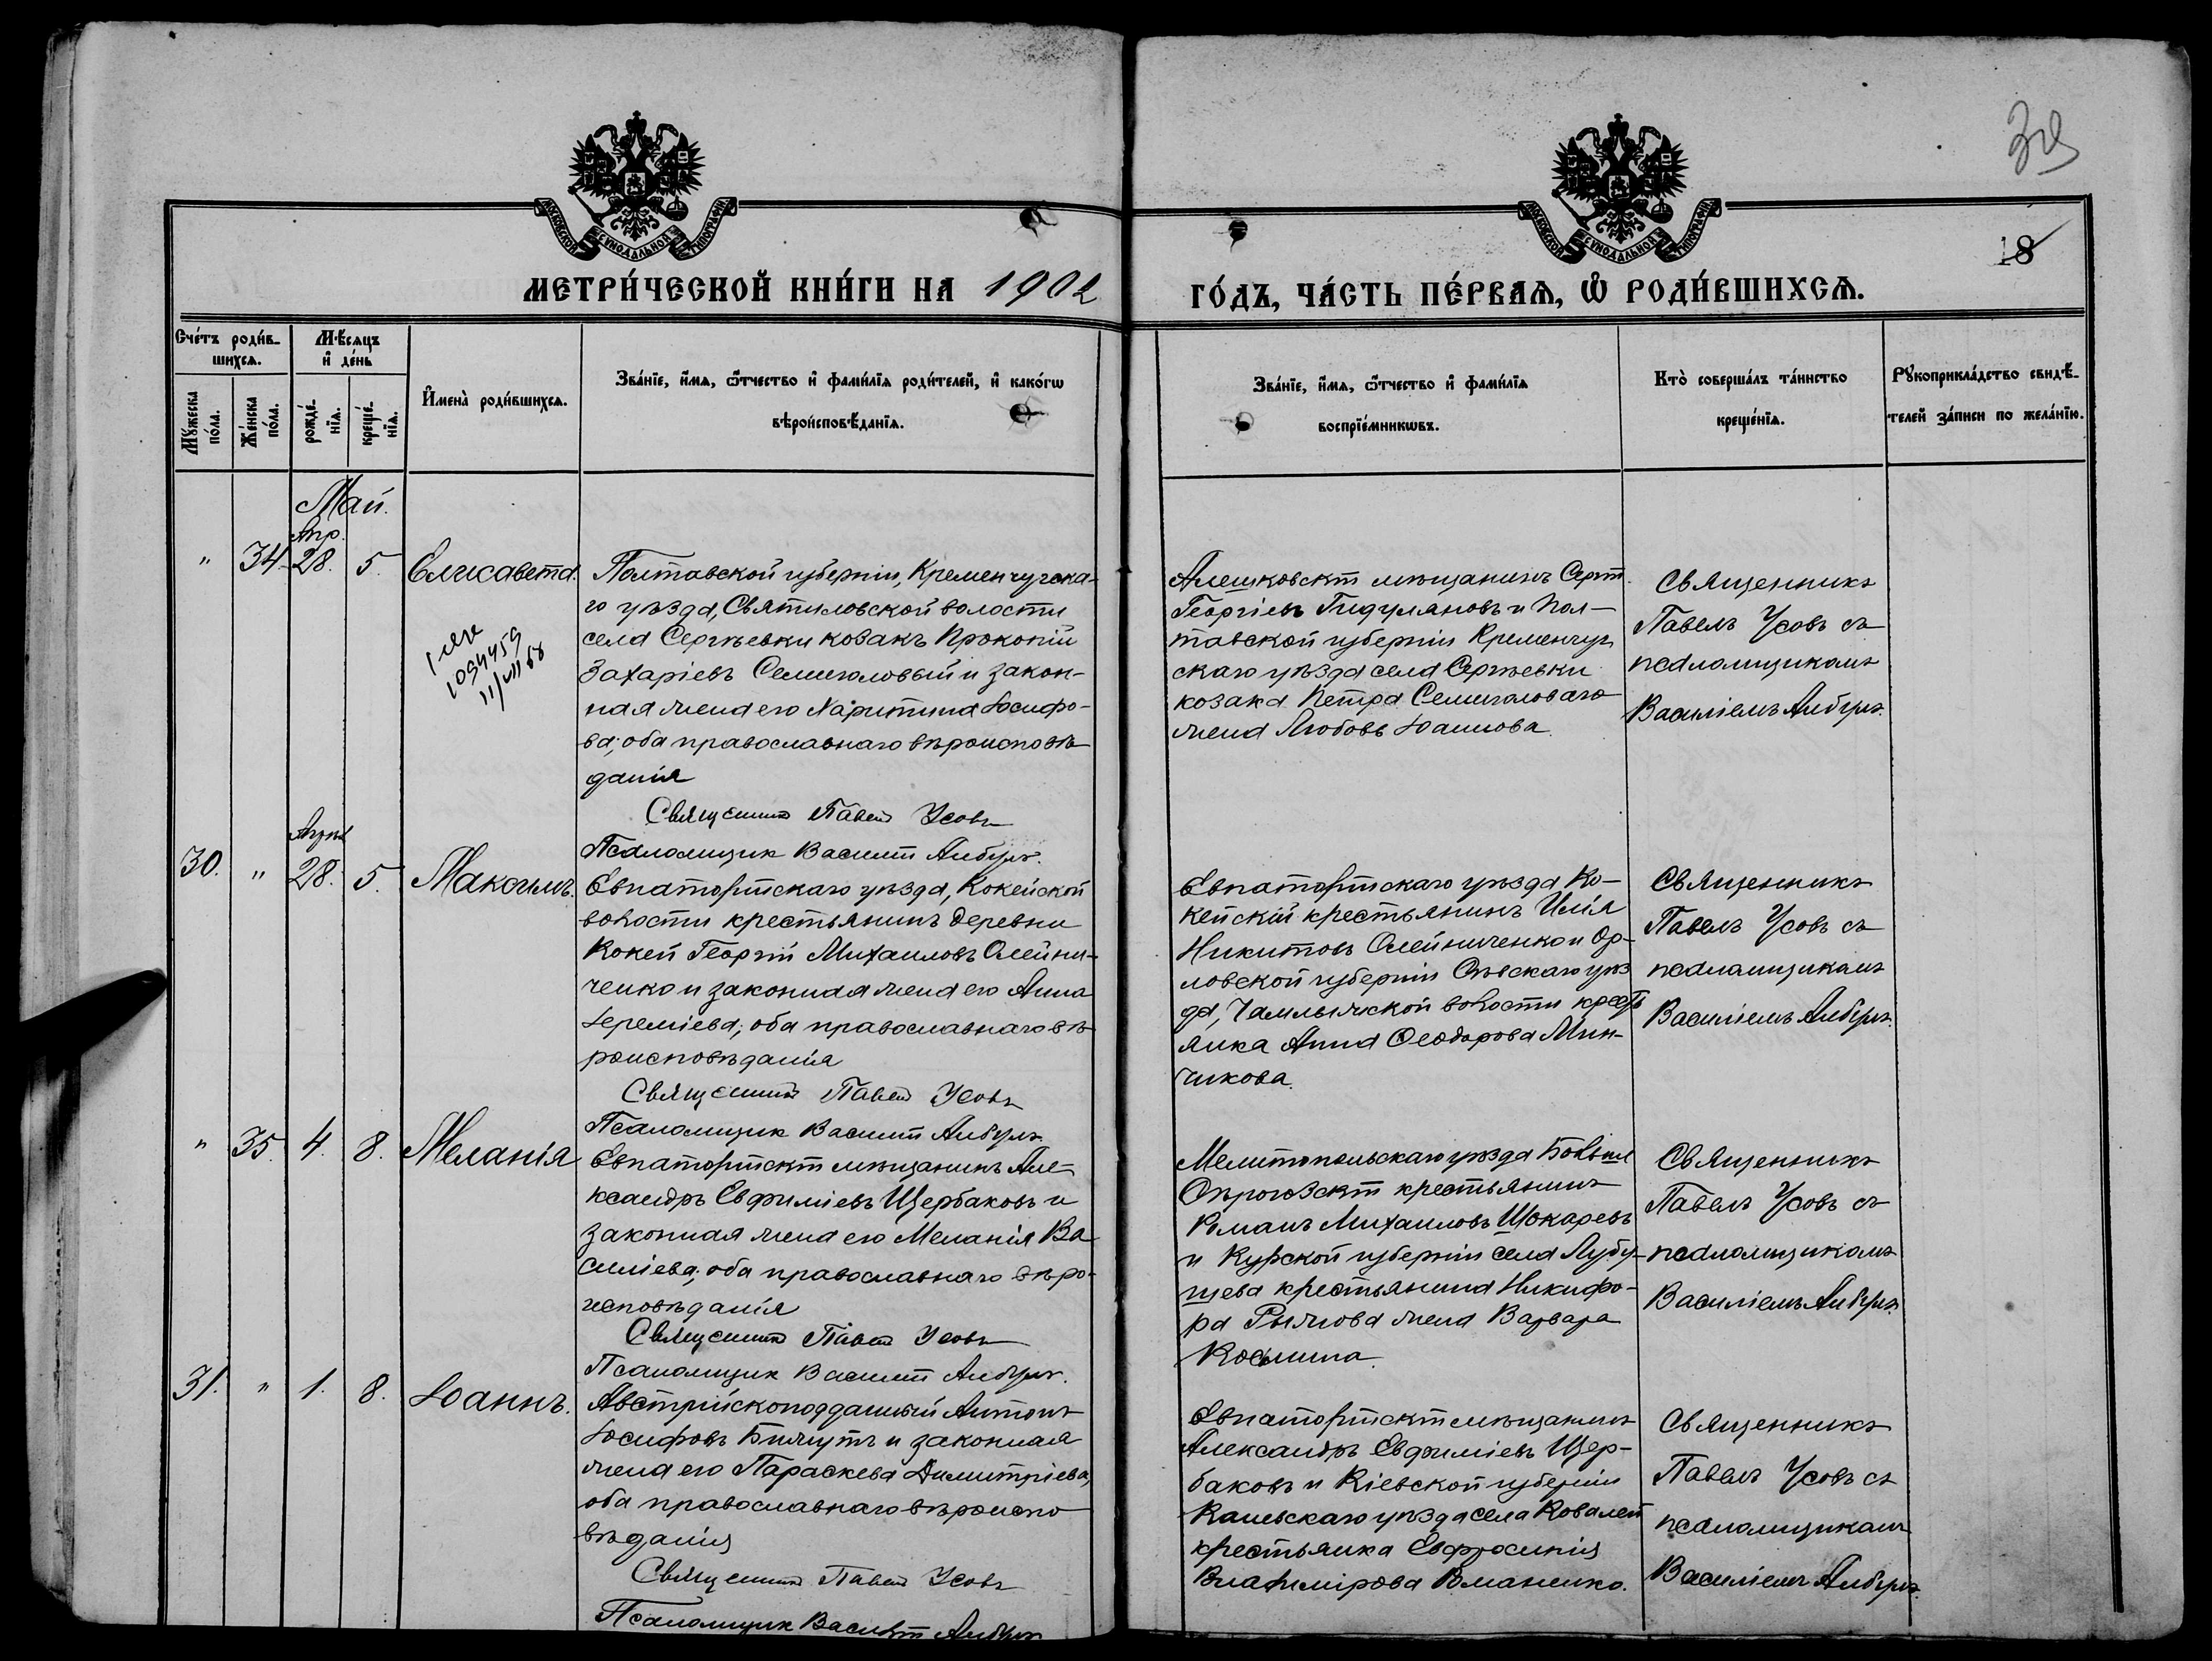 39
18
МОСКОВСКОЙ СѴНОДАЛЬНОЙ ТИПОГРАФІИ
МОСКОВСКОЙ СѴНОДАЛЬНОЙ ТИПОГРАФІИ
МЕТРИ́ЧЕСКОЙ КНИ́ГИ НА 1902
ГО́ДЪ, ЧА́СТЬ ПЕ́РВАѦ, Ѡ РОДИ́ВШИХСѦ.
Сче́тъ роди́в-
шихсѧ.
Мѣ́сѧцъ
и҆ де́нь
Мꙋ́жеска по́ла.
Же́нска по́ла.
рожде́-
нїѧ.
креще́-
нїѧ.
И҆мена̀ роди́вшихсѧ.
Зва́нїе, и҆́мѧ, ѻ҆́тчество и҆ фами́лїѧ роди́телей, и҆ како́гѡ
вѣроисповѣ́данїѧ.
Зва́нїе, и҆́мѧ, ѻ҆́тчество и҆ фами́лїѧ
воспрїе́мникѡвъ.
Кто̀ соверша́лъ та́инство
креще́нїѧ.
Рꙋкоприкла́дство свидѣ́-
телей за́писи по жела́нїю.
Май.
Апр.
" 34 28. 5. Елисавета.
Полтавской губерніи, Кременчугска-
го уѣзда, Святиловской волости
села Сергѣевки козакъ Прокопій
Захаріевъ Семиголовый и закон-
ная жена его Харитина Іосифо-
ва; оба православнаго вѣроисповѣ-
данія
Священникъ Павелъ Усовъ
Псаломщик Василій
1094459
11/VII 68
Алешковскій мѣщанинъ Серг.
Георгіевъ Гидуляновъ и Пол-
тавской губерніи Кременчуг
скаго уѣзда села Сергѣевки
козака Петра Семиголоваго
жена Любовь Іоаннова.
Священникъ
Павелъ Усовъ съ
псаломщикомъ
Василіемъ
Апрѣл
30. " 28. 5. Максимъ.
Евпаторійскаго уѣзда, Кокейской
волости крестьянинъ деревни
Кокей Георгій Михаиловъ Олейни-
ченко и законная жена его Анна
Іереміева; оба православнаго вѣ-
роисповѣданія
Священникъ Павелъ Усовъ
Псаломщик Василій
Евпаторійскаго уѣзда Ко-
кейскій крестьянинъ Илія
Никитовъ Олейниченко и Ор-
ловской губерніи Сѣвскаго уѣз
да, волости крестъ
янка Анна Ѳеодорова Мин-
чикова.
Священникъ
Павелъ Усовъ съ
псаломщикомъ
Василіемъ
" 35. 4. 8. Меланія
Евпаторійскій мѣщанинъ Але-
ксандръ Евфиміевъ Щербаковъ и
законная жена его Меланія Ва
силіева; оба православнаго вѣро-
исповѣданія
Священникъ Павелъ Усовъ
Псаломщик Василій
Мелитопольскаго уѣзда
крестьянинъ
Романъ Михаиловъ Щокаревъ
и Курской губерніи села
крестьянина Никифо-
ра Рыжова жена Варвара
Космина.
Священникъ
Павелъ Усовъ съ
псаломщикомъ
Василіемъ
31. " 1. 8. Іоаннъ.
Австрійскоподданный Антонъ
Іосифовъ и законная
жена его Параскева Димитріева,
оба православнаго вѣроиспо
вѣданія
Священникъ Павелъ Усовъ
Псаломщик Василій
Евпаторійскій мѣщанинъ
Александръ Евфиміевъ Щер-
баковъ и Кіевской губерніи
Каневскаго уѣзда села Ковалей
крестьянка Евфросинія
Владимірова Романенко.
Священникъ
Павелъ Усовъ съ
псаломщикомъ
Василіемъ